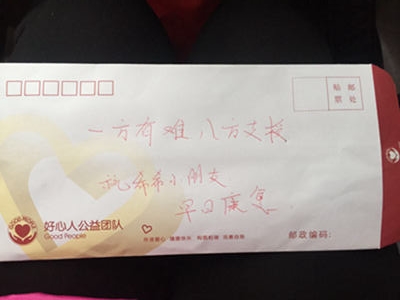 贴邮
票处
一方有难 八方支援
祝希希小朋友
早日康复
GOOD PEOPLE
好心人公益团队
Good People
邮政编码：